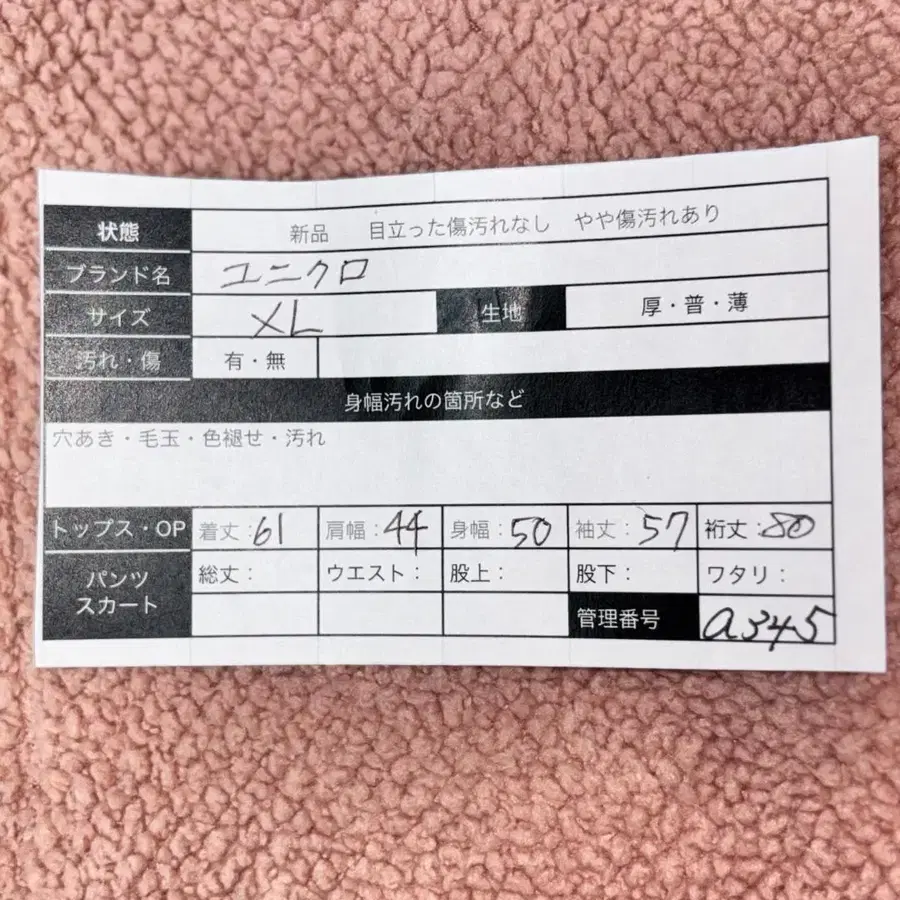 状態 新品 目立った傷汚れなし やや傷汚れあり
ブランド名 ユニクロ
サイズ XL 生地 厚・普・薄
汚れ・傷 有・無
身幅汚れの箇所など
穴あき・毛玉・色褪せ・汚れ
トップス・OP 着丈:61 肩幅:44 身幅:50 袖丈:57 裄丈:80
パンツ スカート 総丈: ウエスト: 股上: 股下: ワタリ:
管理番号 a345